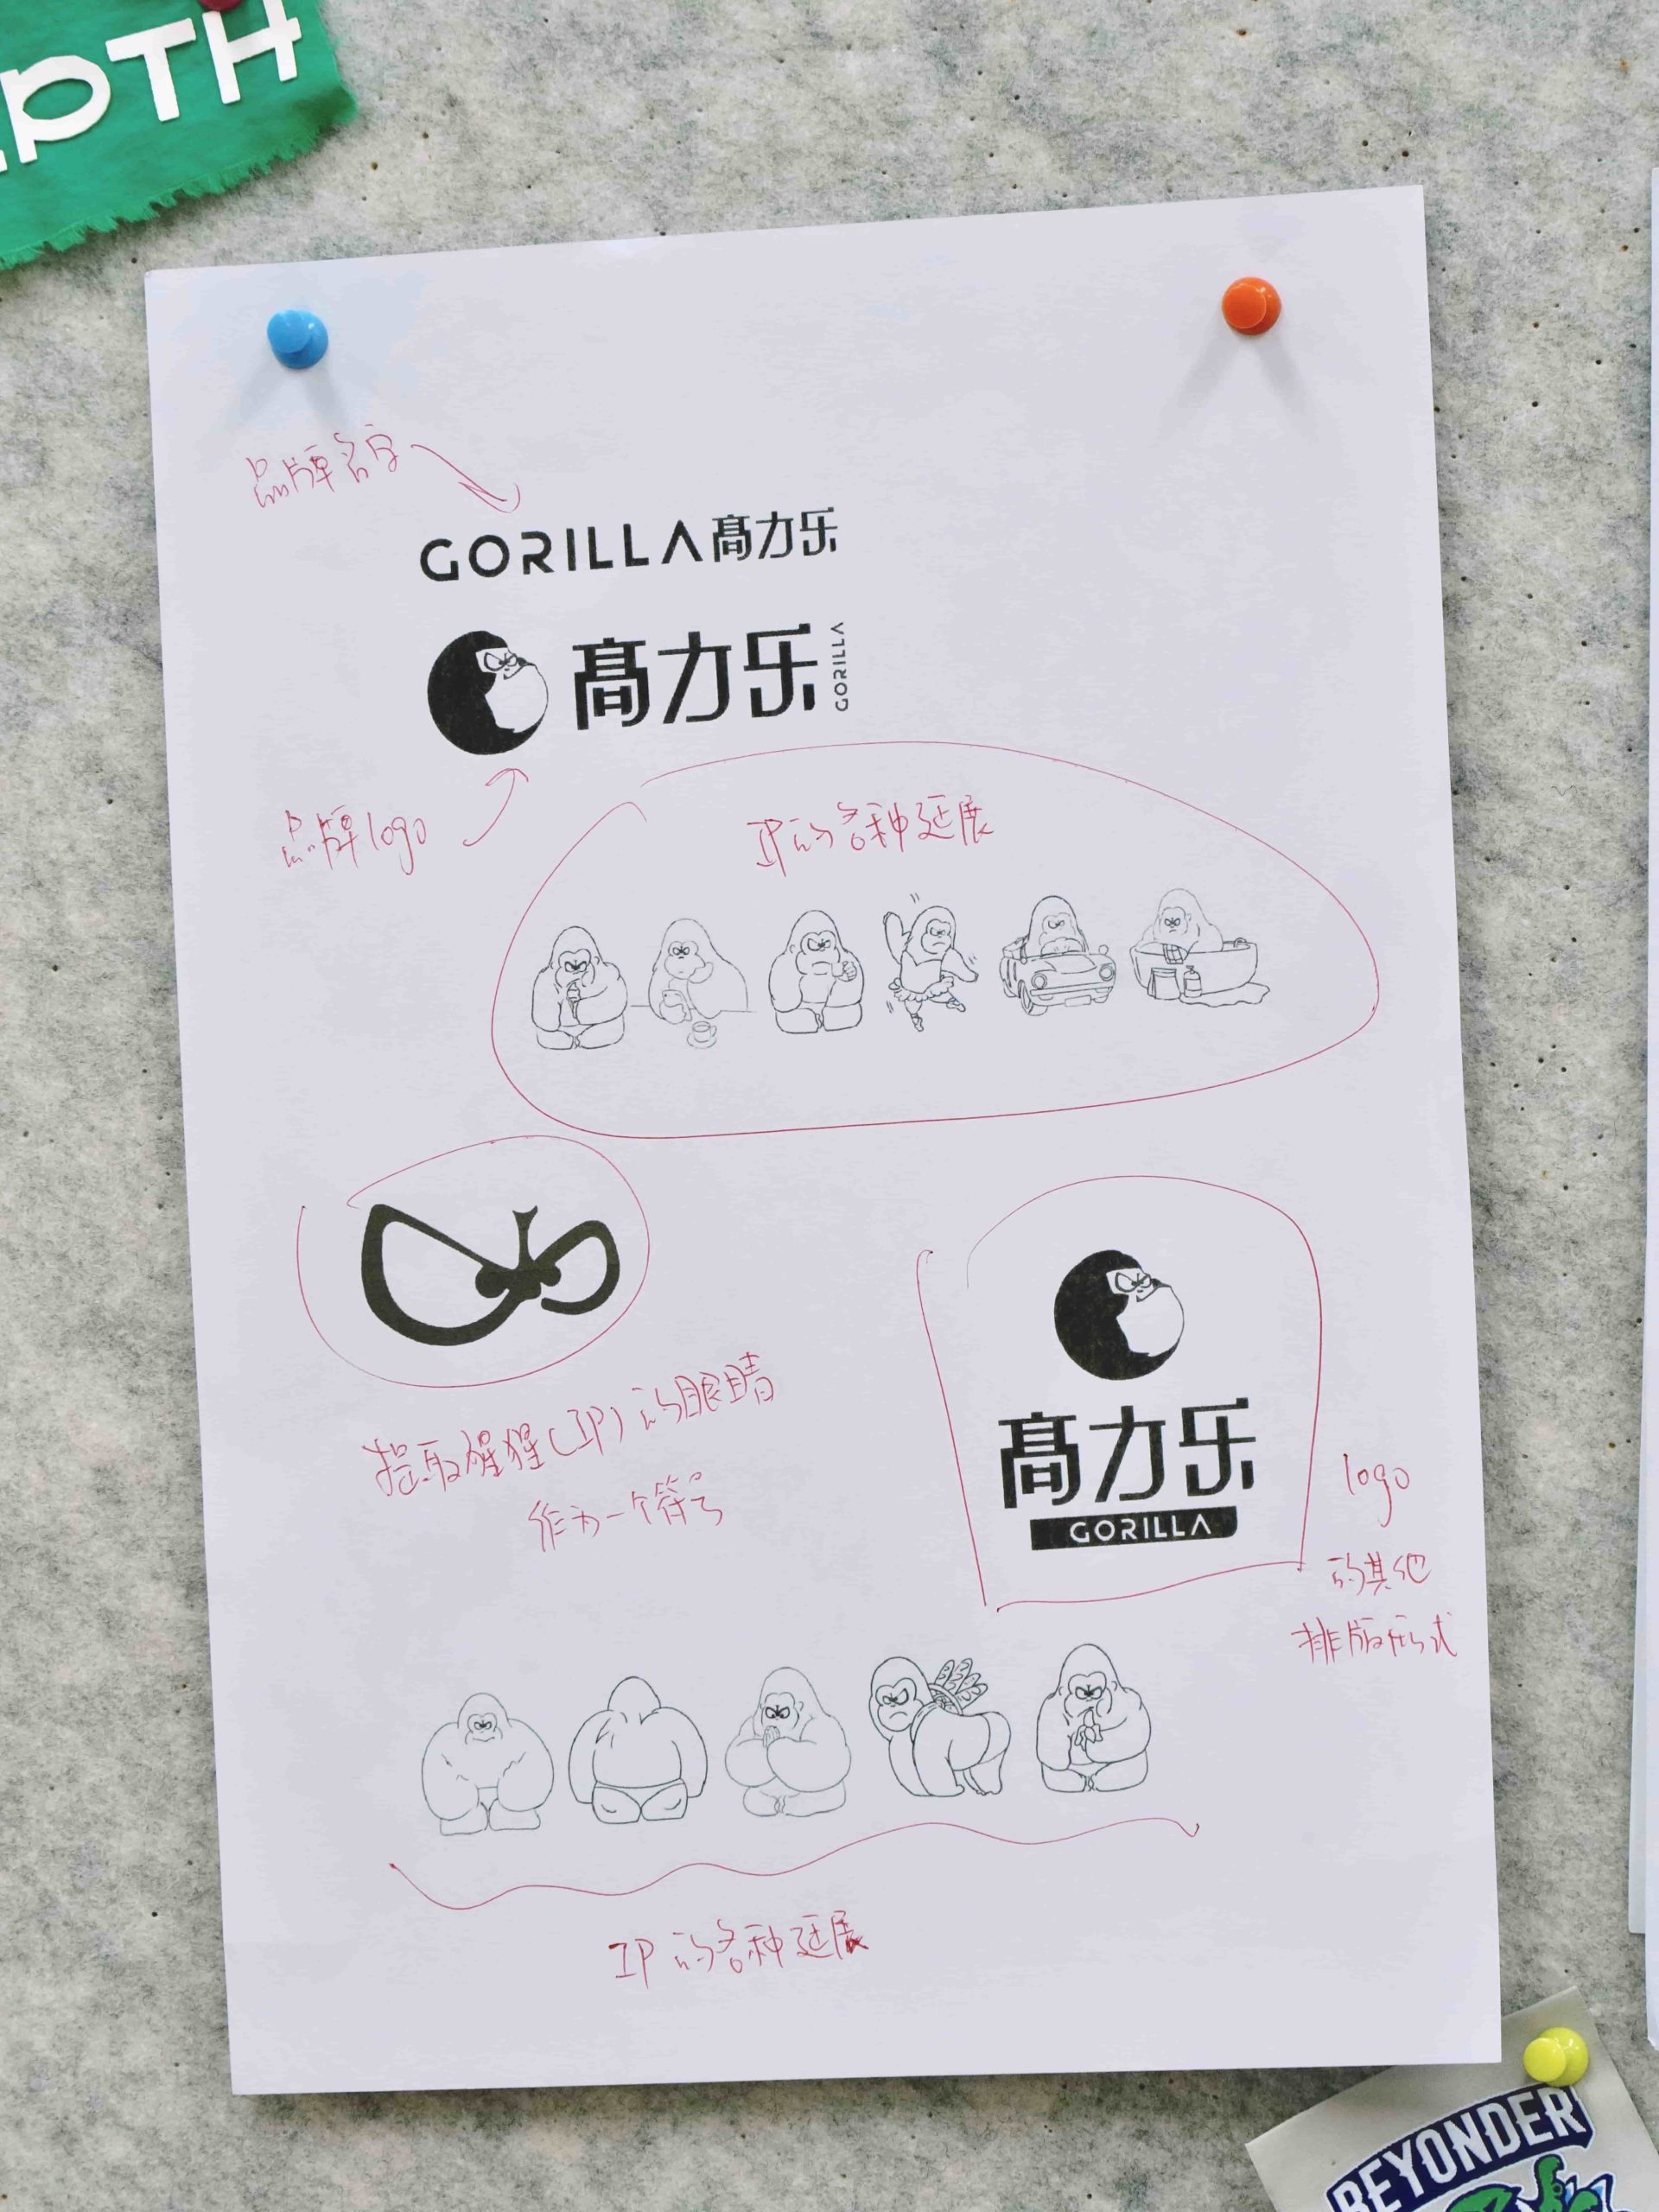 PTH
品牌名字
GORILLA髙力乐
髙力乐 GORILLA
品牌logo
IP的各种延展
提取猩猩(IP)的眼睛
作为一个符号
髙力乐
GORILLA
logo
的其他
排版形式
IP的各种延展
BEYONDER